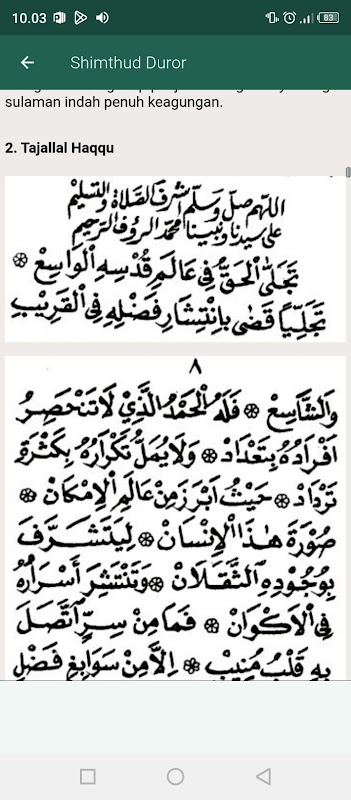 10.03
83
Shimthud Duror
sulaman indah penuh keagungan.
2. Tajallal Haqqu
اللهم صل وسلم أشرف الصلاة والتسليم
على سيدنا ونبينا محمد الرؤف الرحيم
تَجَلَّى الْحَقُّ فِي عَالَمِ قُدْسِهِ الْوَاسِعْ ۞
تَجَلِّيًا قَضَى بِانْتِشَارِ فَضْلِهِ فِي الْقَرِيْبِ
٨
وَالشَّاسِعْ ۞ فَلَهُ الْحَمْدُ الَّذِيْ لَا تَنْحَصِرُ
اَفْرَادُهُ بِتَعْدَادْ ۞ وَلَا يُمَلُّ تَكْرَارُهُ بِكَثْرَةِ
تَرْدَادْ ۞ حَيْثُ اَبْرَزَ مِنْ عَالَمِ الْاِمْكَانْ ۞
صُوْرَةَ هٰذَا الْاِنْسَانْ ۞ لِيَتَشَرَّفَ
بِوُجُوْدِهِ الثَّقَلَانْ ۞ وَتَنْتَشِرَ اَسْرَارُهُ
فِي الْاَكْوَانْ ۞ فَمَا مِنْ سِرٍّ اتَّصَلَ
بِهِ قَلْبُ مُنِيْبْ ۞ اِلَّا مِنْ سَوَابِغِ فَضْلِ